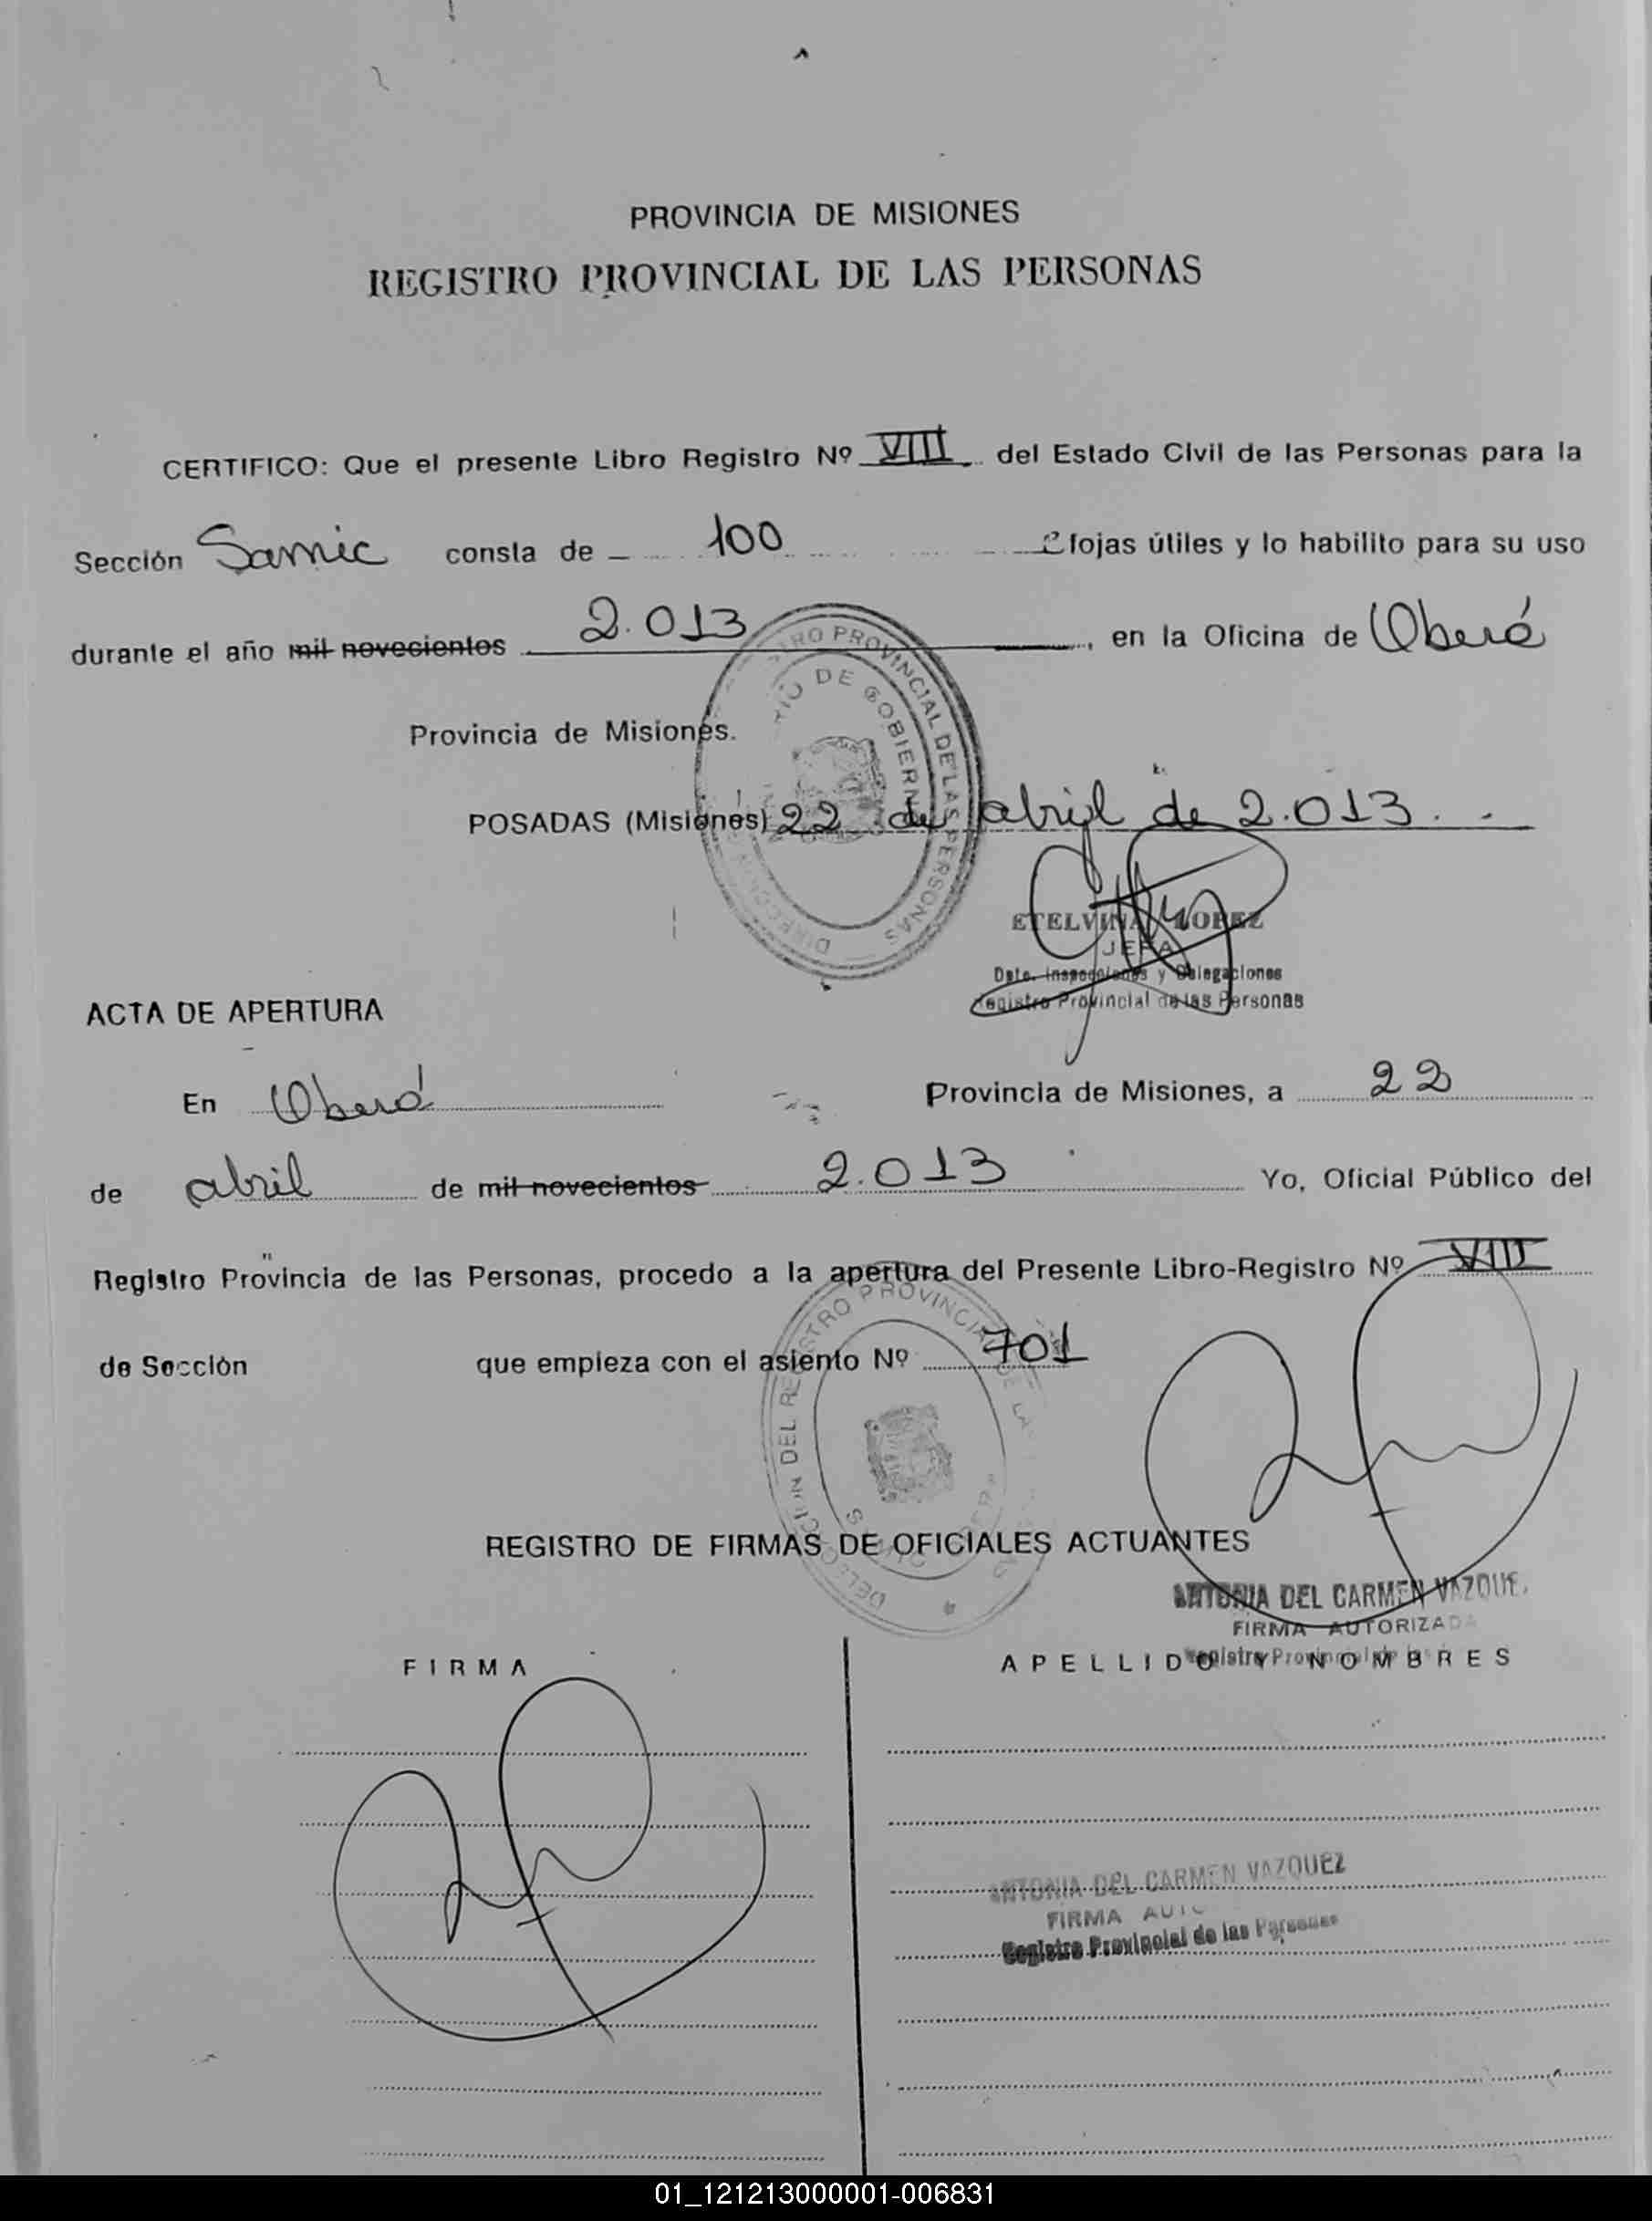 PROVINCIA DE MISIONES
REGISTRO PROVINCIAL DE LAS PERSONAS
CERTIFICO: Que el presente Libro Registro Nº VIII del Estado Civil de las Personas para la
Sección Samic consta de 100 fojas útiles y lo habilito para su uso
durante el año mil novecientos 2.013, en la Oficina de Oberá
Provincia de Misiones.
POSADAS (Misiones) 22 de abril de 2.013.
REGISTRO PROVINCIAL DE LAS PERSONAS
DE GOBIERN
ETELVINA LOPEZ
JEFA
Dpto. Inspecciones y Delegaciones
Registro Provincial de las Personas
ACTA DE APERTURA
En Oberá Provincia de Misiones, a 22
de abril de mil novecientos 2.013 Yo, Oficial Público del
Registro Provincia de las Personas, procedo a la apertura del Presente Libro-Registro Nº VIII
de Sección que empieza con el asiento Nº 701
DEL REGISTRO PROVINCIAL DE LA
REGISTRO DE FIRMAS DE OFICIALES ACTUANTES
ANTONIA DEL CARMEN VAZQUE
FIRMA AUTORIZADA
Registro Provincial de las
FIRMA APELLIDO Y NOMBRES
ANTONIA DEL CARMEN VAZQUEZ
FIRMA AUTO
Registro Provincial de las Personas
01_121213000001-006831